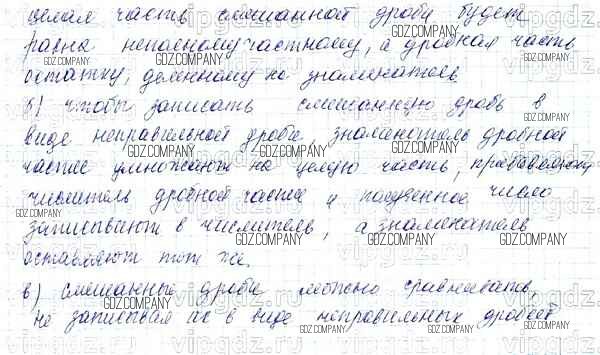 целая часть смешанной дроби будет
равна неполному частному, а дробная часть
остатку, деленному на знаменатель
б) чтобы записать смешанную дробь в
виде неправильной дроби, знаменатель дробной
части умножают на целую часть, прибавляют
числитель дробной части и полученное число
записывают в числитель, а знаменатель
оставляют тот же.
в) Смешанные дроби можно сравнивать,
не записывая их в виде неправильных дробей